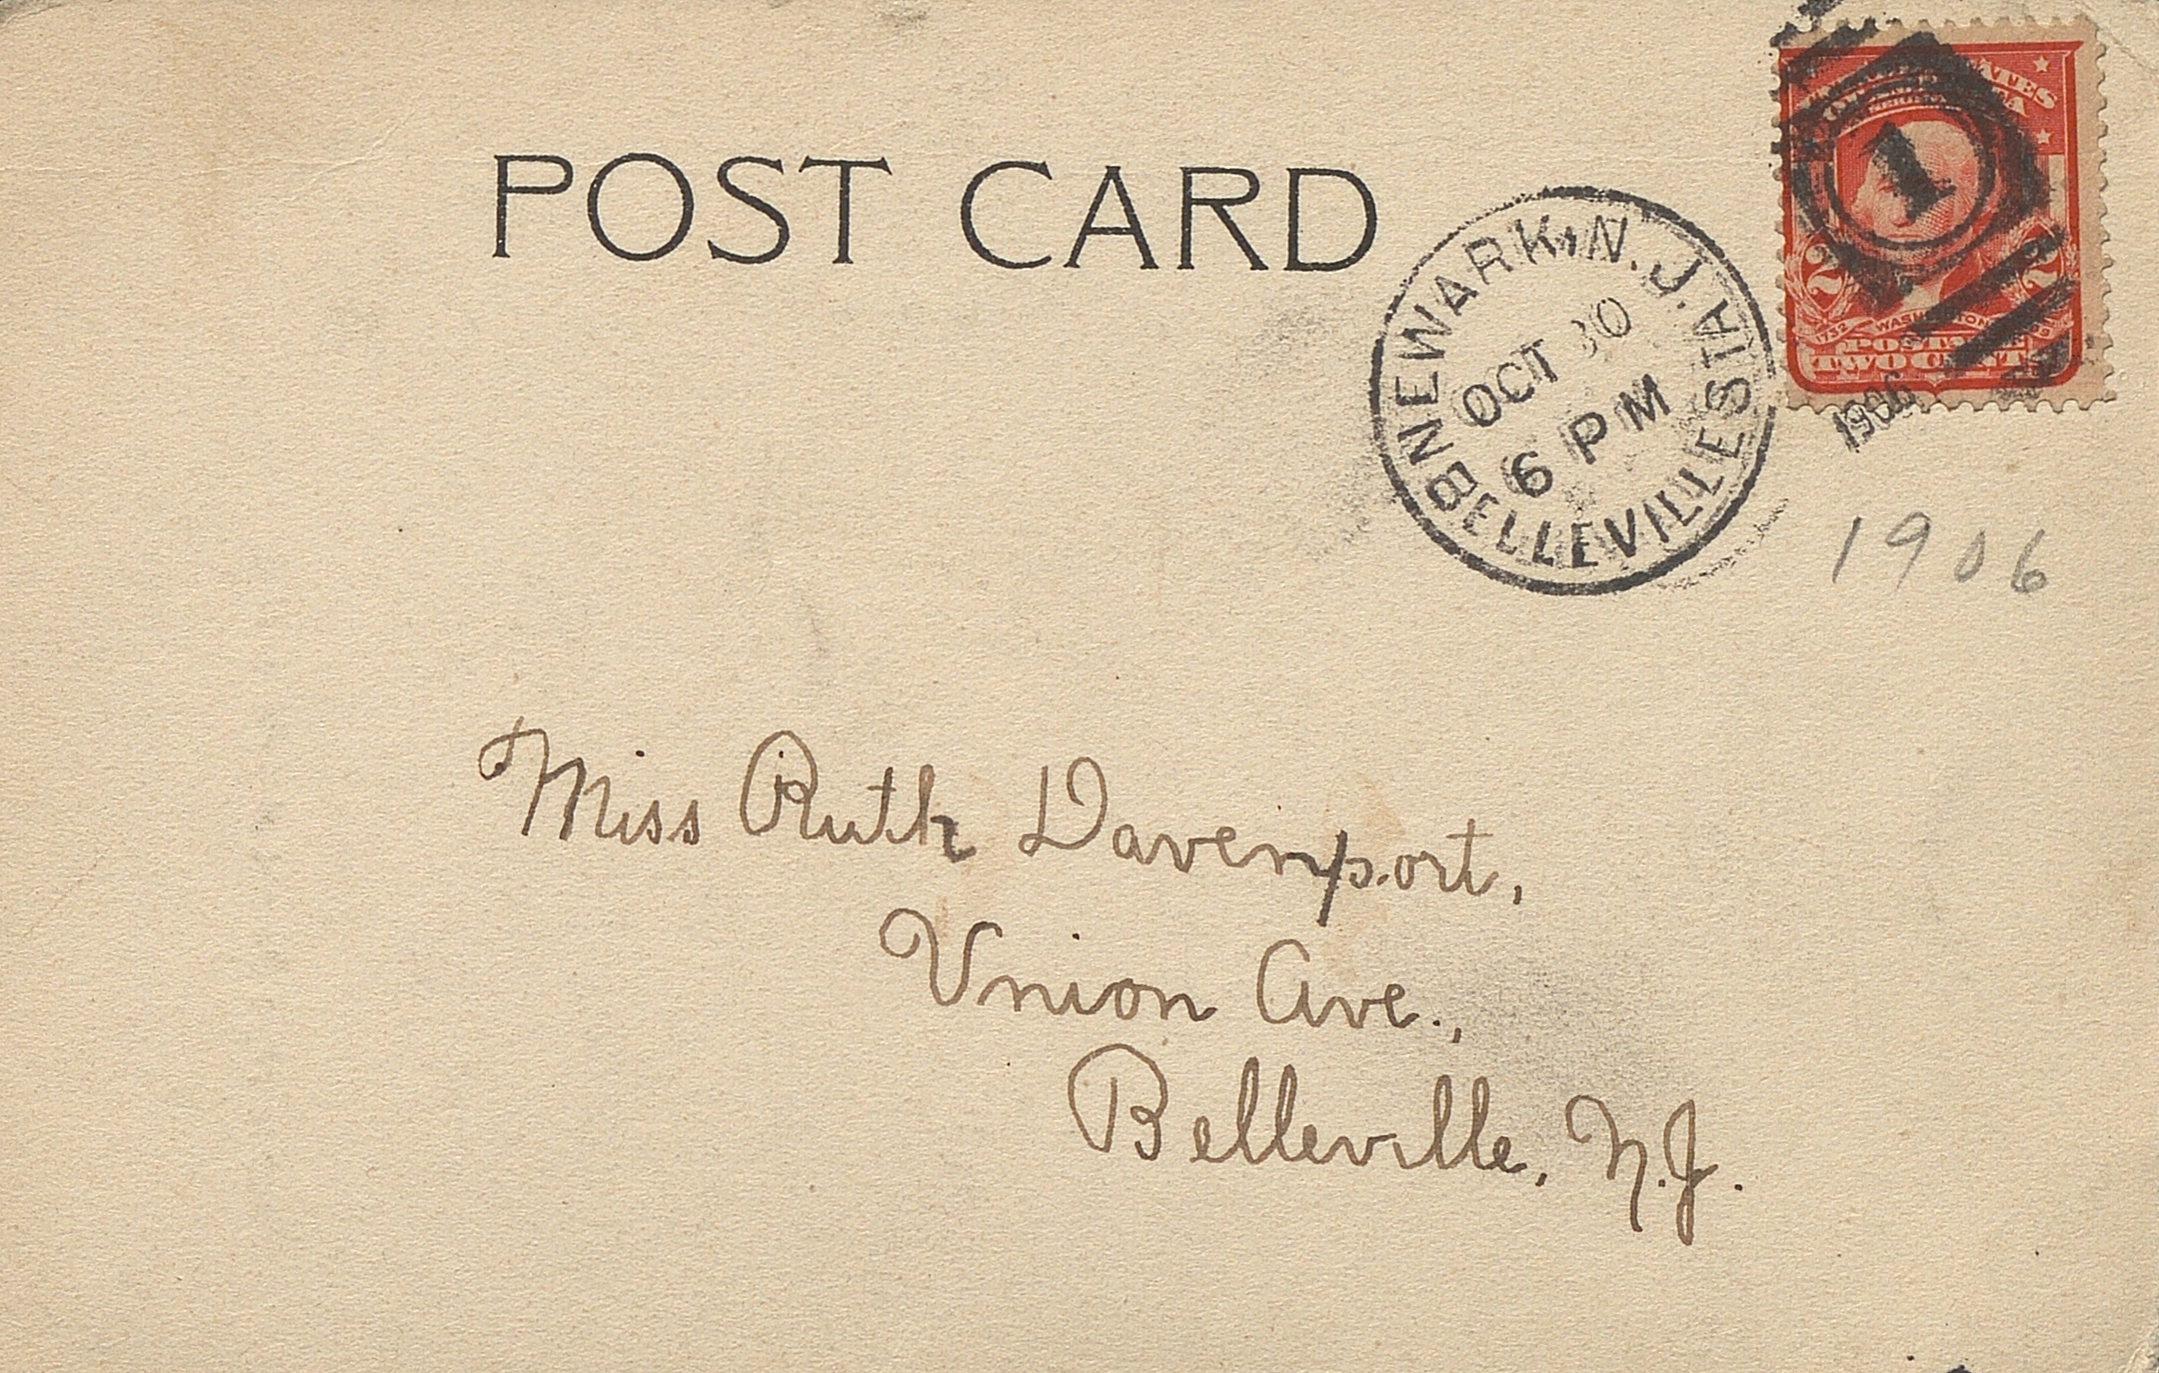 POST CARD
NEWARK, N.J.
OCT 30
6 PM
BELLEVILLE STA
1
2 2
1732 WASHINGTON
POSTAGE
TWO CENTS
1906
1906
Miss Ruth Davenport,
Union Ave.,
Belleville, N.J.